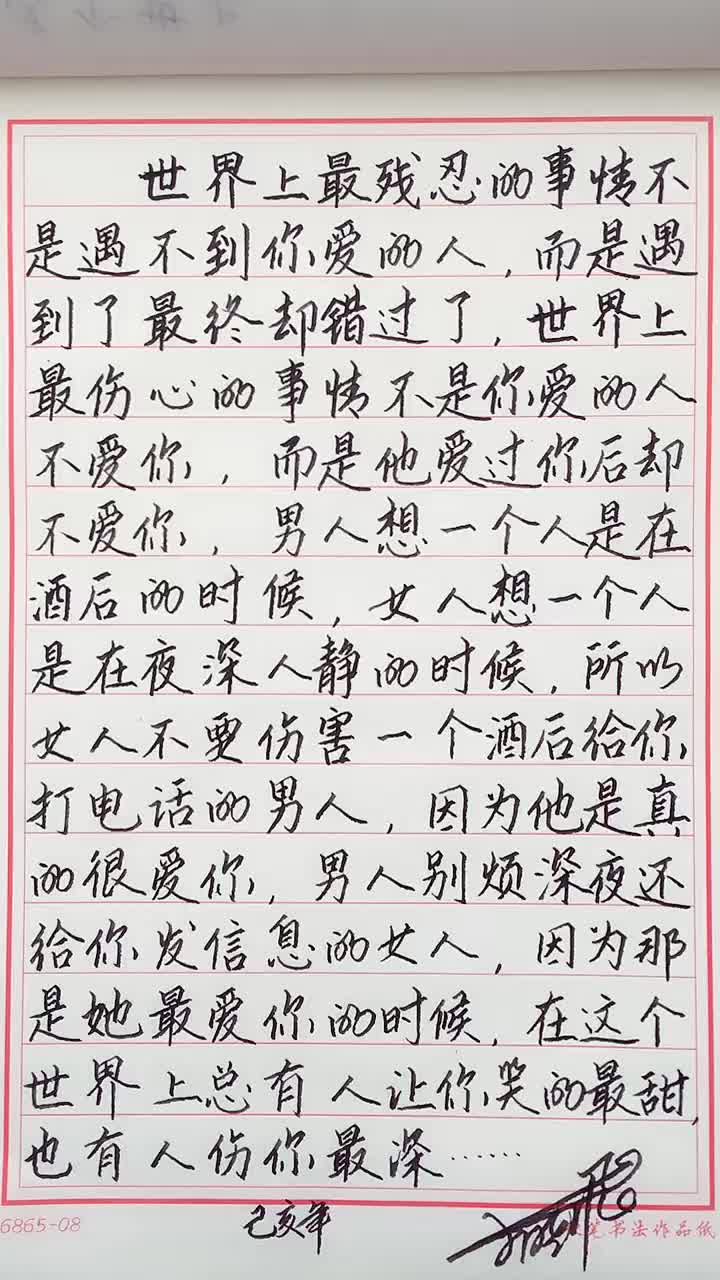 世界上最残忍的事情不
是遇不到你爱的人，而是遇
到了最终却错过了，世界上
最伤心的事情不是你爱的人
不爱你，而是他爱过你后却
不爱你，男人想一个人是在
酒后的时候，女人想一个人
是在夜深人静的时候，所以
女人不要伤害一个酒后给你
打电话的男人，因为他是真
的很爱你，男人别烦深夜还
给你发信息的女人，因为那
是她最爱你的时候，在这个
世界上总有人让你笑的最甜，
也有人伤你最深……
己亥年
6865-08
笔书法作品纸